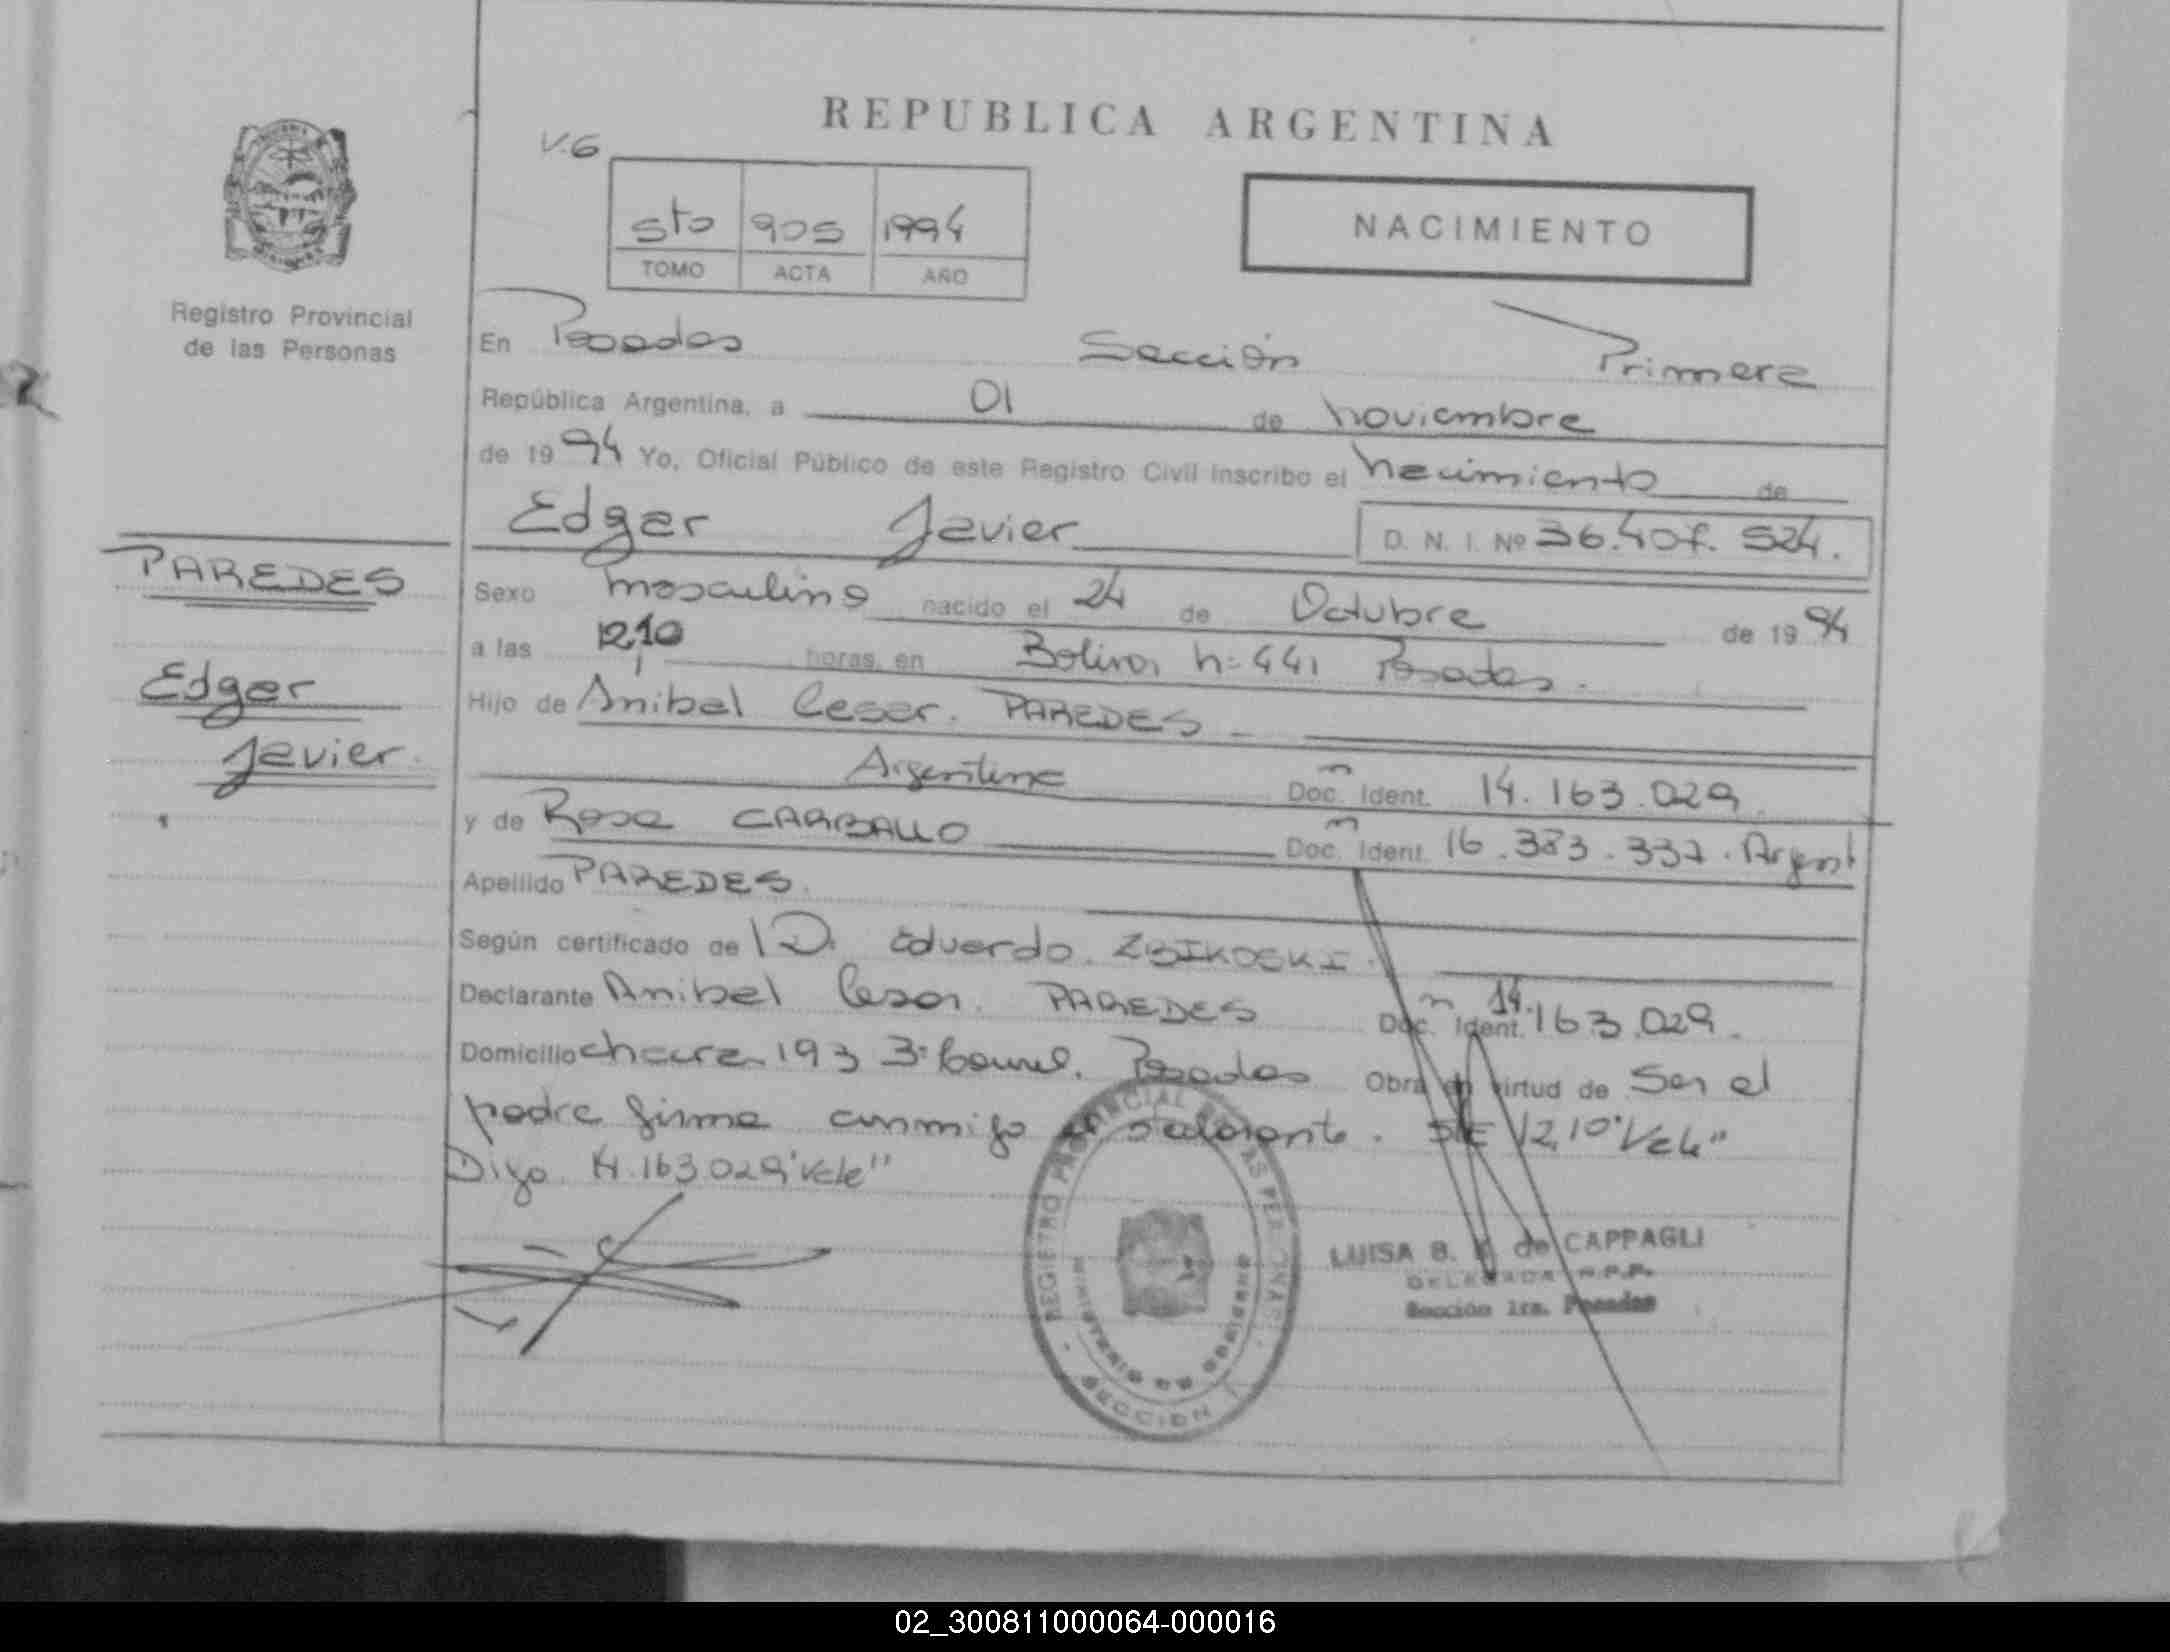 REPUBLICA ARGENTINA
V.6
5to 905 1994
TOMO ACTA AÑO
NACIMIENTO
Registro Provincial
de las Personas
En Posadas Sección Primera
República Argentina, a 01 de noviembre
de 1994 Yo, Oficial Público de este Registro Civil inscribo el nacimiento de
Edgar Javier D. N. I. Nº 36.407.524.
PAREDES
Edgar
Javier.
Sexo masculino nacido el 24 de Octubre de 1994
a las 12,10 horas, en Bolivar n= 441 Posadas.
Hijo de Anibal Cesar. PAREDES
Argentina Doc. Ident. 14.163.029.
y de Rosa CARBALLO Doc. Ident. 16.383.337. Argent
Apellido PAREDES.
Según certificado de Eduardo. ZBIKOSKI.
Declarante Anibal Cesar. PAREDES Doc. Ident. 14.163.029.
Domicilio chacra 193 Posadas Obra en virtud de Ser el
padre firma conmigo 12,10 "Vale"
Digo 14.163.029 "Vale"
REGISTRO PROVINCIAL DE LAS PERSONAS
MINISTERIO DE GOBIERNO
SECCION
LUISA B. de CAPPAGLI
DELEGADA R.P.P.
Sección 1ra. Posadas
02_300811000064-000016